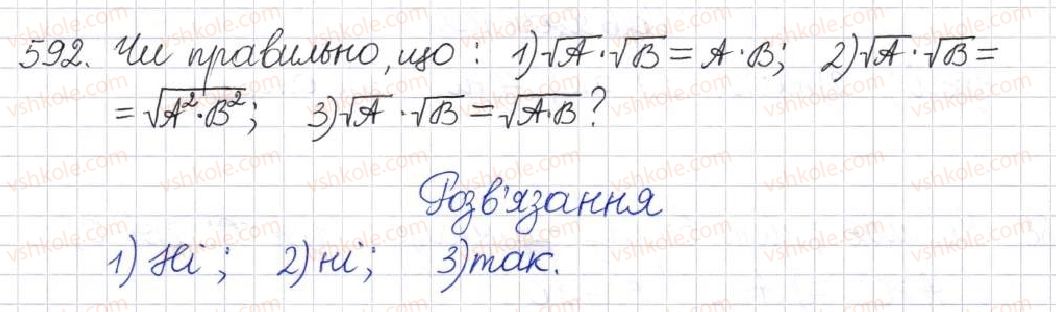 592. Чи правильно, що: 1) √A · √B = A · B; 2) √A · √B =
= √A² · B²; 3) √A · √B = √A·B?
Розв'язання
1) Ні; 2) ні; 3) так.